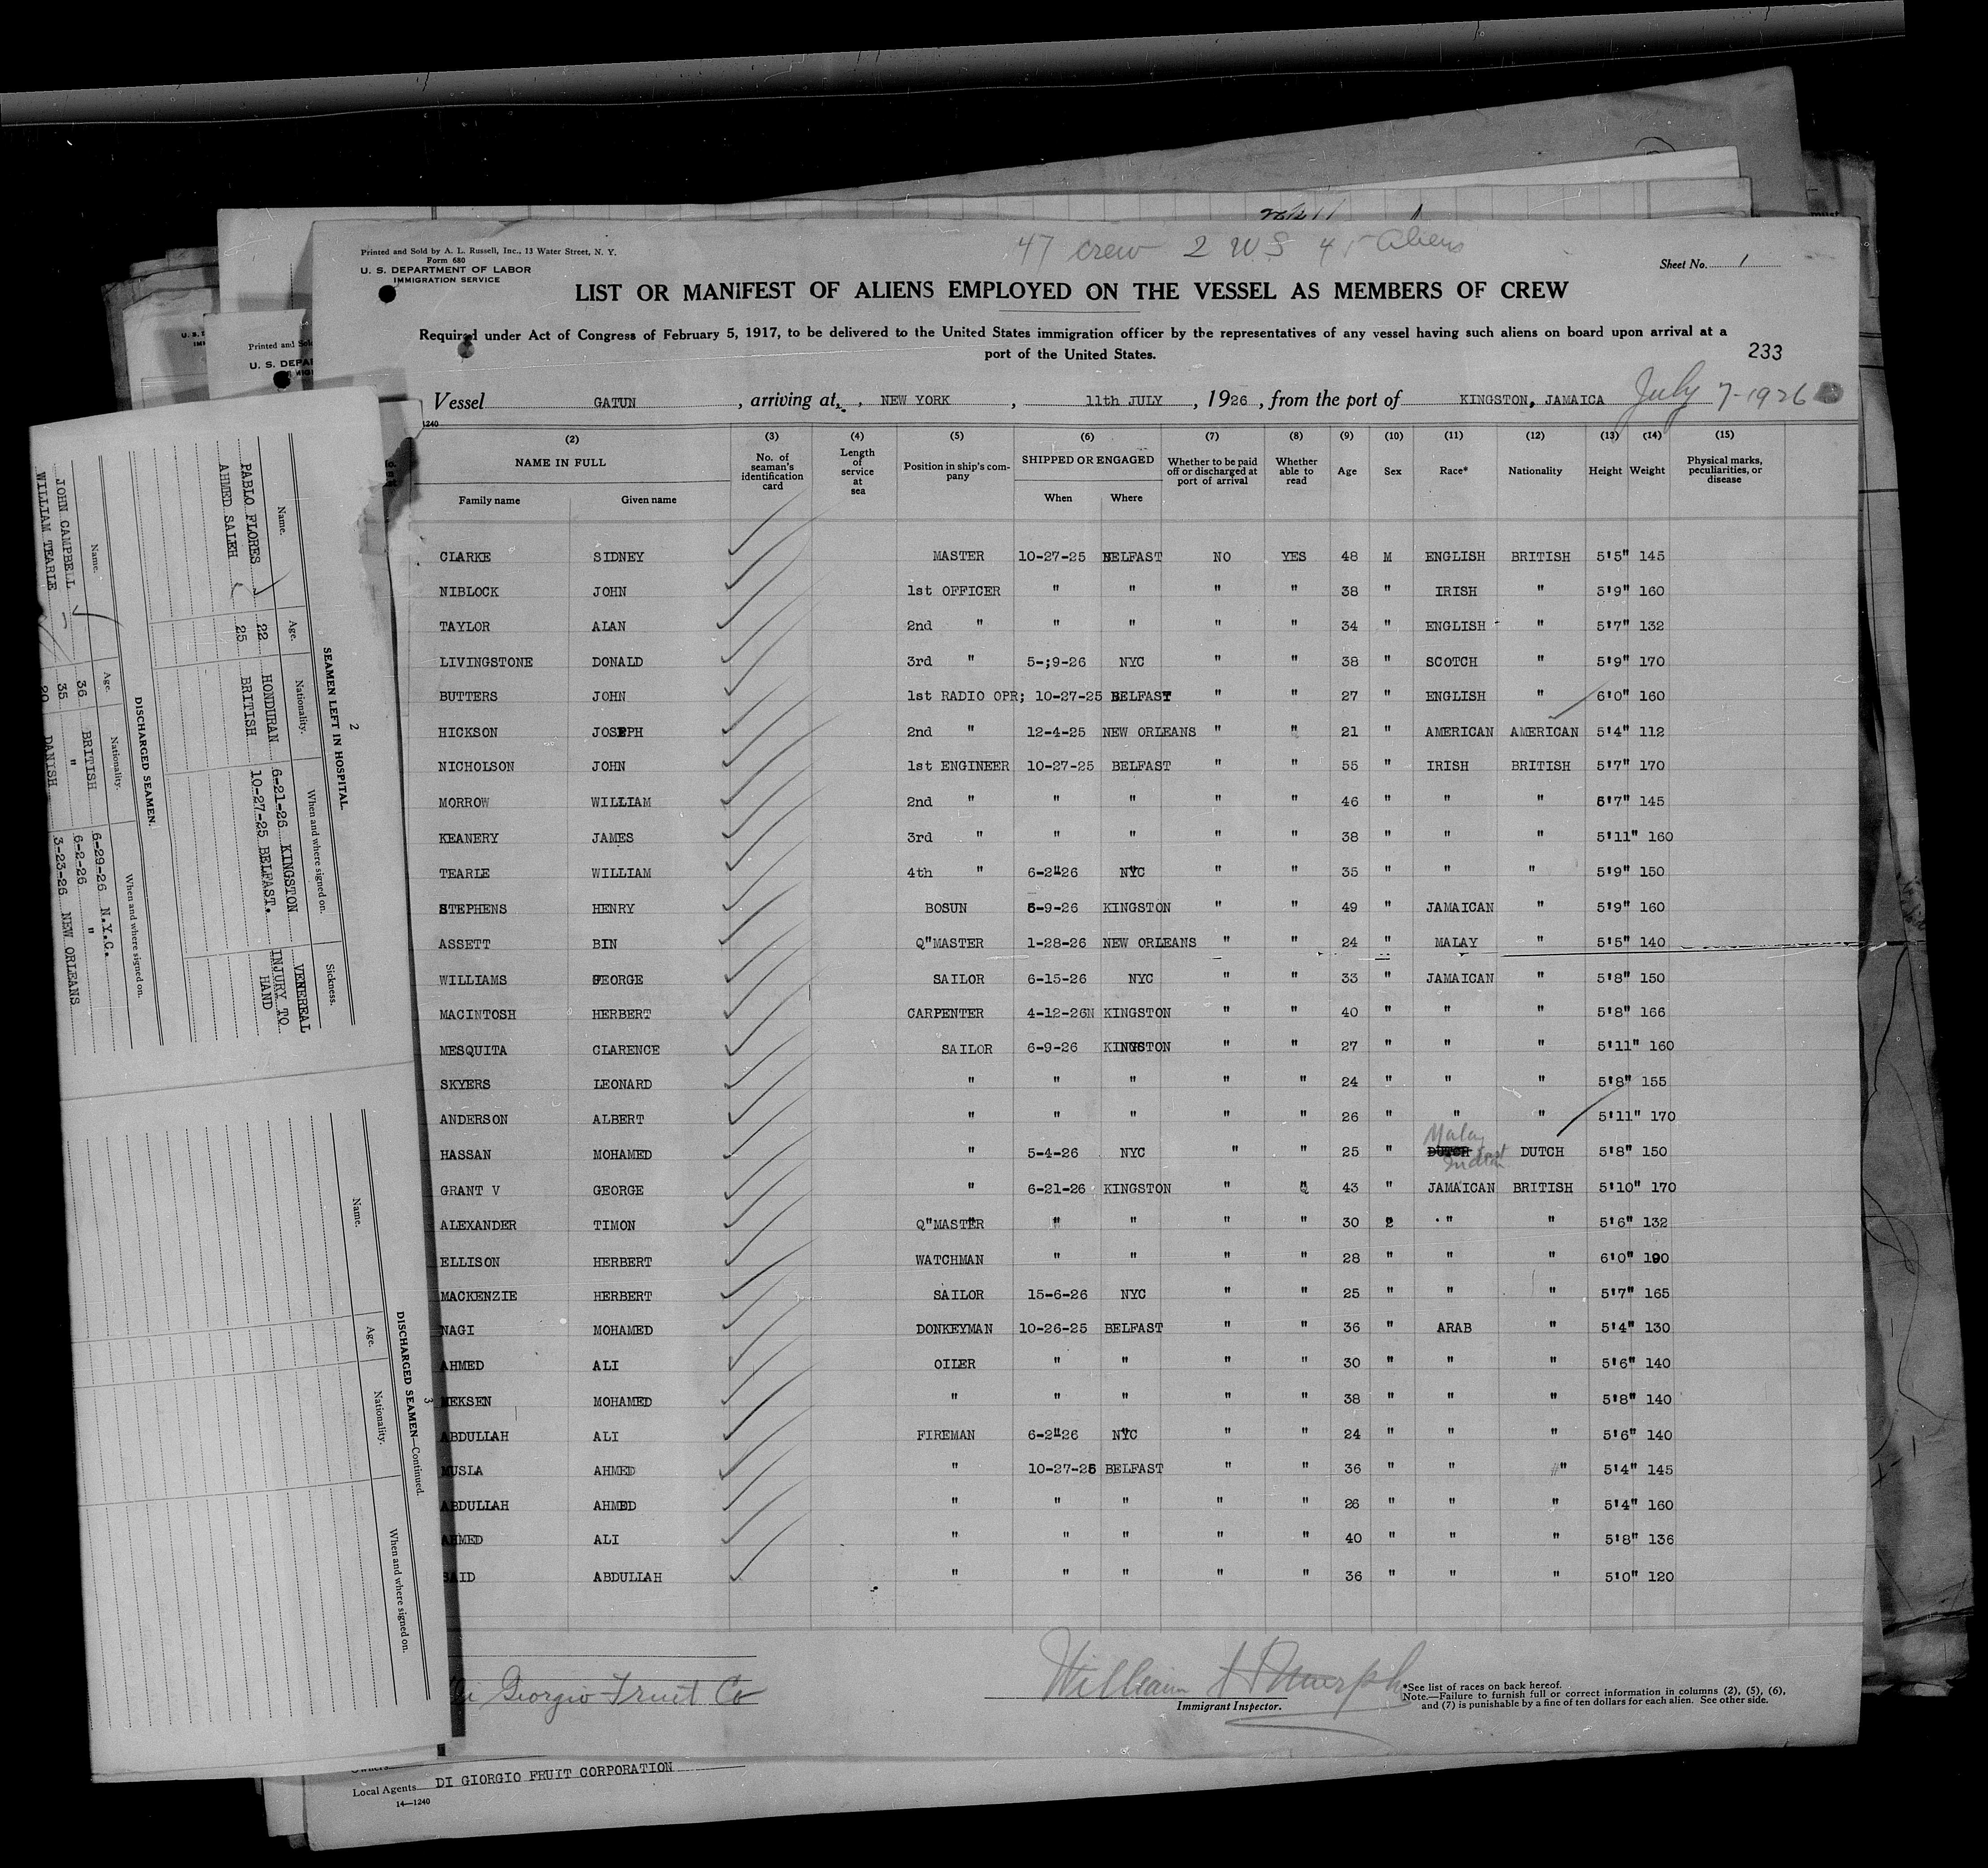 47 crew 2 U.S 45 Aliens
Printed and Sold by A. L. Russell, Inc., 13 Water Street, N. Y.
Form 680
U. S. DEPARTMENT OF LABOR
IMMIGRATION SERVICE
Sheet No. 1
LIST OR MANIFEST OF ALIENS EMPLOYED ON THE VESSEL AS MEMBERS OF CREW
Required under Act of Congress of February 5, 1917, to be delivered to the United States immigration officer by the representatives of any vessel having such aliens on board upon arrival at a
port of the United States.
233
Vessel GATUN, arriving at, NEW YORK, 11th JULY, 1926, from the port of KINGSTON, JAMAICA July 7-1926
1240
(2) (3) (4) (5) (6) (7) (8) (9) (10) (11) (12) (13) (14) (15)
NAME IN FULL
Family name Given name
No. of seaman's identification card
Length of service at sea
Position in ship's company
SHIPPED OR ENGAGED
When Where
Whether to be paid off or discharged at port of arrival
Whether able to read
Age Sex Race* Nationality Height Weight
Physical marks, peculiarities, or disease
CLARKE SIDNEY MASTER 10-27-25 BELFAST NO YES 48 M ENGLISH BRITISH 5'5" 145
NIBLOCK JOHN 1st OFFICER " " " " 38 " IRISH " 5'9" 160
TAYLOR ALAN 2nd " " " " " 34 " ENGLISH " 5'7" 132
LIVINGSTONE DONALD 3rd " 5-;9-26 NYC " " 38 " SCOTCH " 5'9" 170
BUTTERS JOHN 1st RADIO OPR; 10-27-25 BELFAST " " 27 " ENGLISH " 6'0" 160
HICKSON JOSEPH 2nd " 12-4-25 NEW ORLEANS " " 21 " AMERICAN AMERICAN 5'4" 112
NICHOLSON JOHN 1st ENGINEER 10-27-25 BELFAST " " 55 " IRISH BRITISH 5'7" 170
MORROW WILLIAM 2nd " " " " " 46 " " " 5'7" 145
KEANERY JAMES 3rd " " " " " 38 " " " 5'11" 160
TEARLE WILLIAM 4th " 6-2"26 NYC " " 35 " " " 5'9" 150
STEPHENS HENRY BOSUN 6-9-26 KINGSTON " " 49 " JAMAICAN " 5'9" 160
ASSETT BIN Q"MASTER 1-28-26 NEW ORLEANS " " 24 " MALAY " 5'5" 140
WILLIAMS GEORGE SAILOR 6-15-26 NYC " " 33 " JAMAICAN " 5'8" 150
MACINTOSH HERBERT CARPENTER 4-12-26N KINGSTON " " 40 " " " 5'8" 166
MESQUITA CLARENCE SAILOR 6-9-26 KINGSTON " " 27 " " " 5'11" 160
SKYERS LEONARD " " " " " 24 " " " 5'8" 155
ANDERSON ALBERT " " " " " 26 " " " 5'11" 170
HASSAN MOHAMED " 5-4-26 NYC " " 25 " DUTCH Malay East Indian DUTCH 5'8" 150
GRANT V GEORGE " 6-21-26 KINGSTON " " 43 " JAMAICAN BRITISH 5'10" 170
ALEXANDER TIMON Q"MASTER " " " " 30 " " " 5'6" 132
ELLISON HERBERT WATCHMAN " " " " 28 " " " 6'0" 190
MACKENZIE HERBERT SAILOR 15-6-26 NYC " " 25 " " " 5'7" 165
NAGI MOHAMED DONKEYMAN 10-26-25 BELFAST " " 36 " ARAB " 5'4" 130
AHMED ALI OILER " " " " 30 " " " 5'6" 140
MEKSEN MOHAMED " " " " " 38 " " " 5'8" 140
ABDULLAH ALI FIREMAN 6-2"26 NYC " " 24 " " " 5'6" 140
MUSLA AHMED " 10-27-25 BELFAST " " 36 " " " 5'4" 145
ABDULLAH AHMED " " " " " 26 " " " 5'4" 160
AHMED ALI " " " " " 40 " " " 5'8" 136
SAID ABDULLAH " " " " " 36 " " " 5'0" 120
Di Giorgio Fruit Co
William J Murphy
Immigrant Inspector.
*See list of races on back hereof.
Note.—Failure to furnish full or correct information in columns (2), (5), (6),
and (7) is punishable by a fine of ten dollars for each alien. See other side.
Owners
Local Agents DI GIORGIO FRUIT CORPORATION
14—1240
Printed and Sol
U. S. DEPA
2
SEAMEN LEFT IN HOSPITAL.
Name. Age. Nationality. When and where signed on. Sickness.
PABLO FLORES 22 HONDURAN 6-21-26 KINGSTON VENEREAL
AHMED SALEH 25 BRITISH 10-27-25 BELFAST. INJURY TO HAND
DISCHARGED SEAMEN.
Name. Age. Nationality. When and where signed on.
JOHN CAMPBELL 36 BRITISH 6-29-26 N.Y.C.
WILLIAM TEARLE 35 " 6-2-26 "
20 DANISH 3-23-26 NEW ORLEANS
3
DISCHARGED SEAMEN—Continued.
Name. Age. Nationality. When and where signed on.